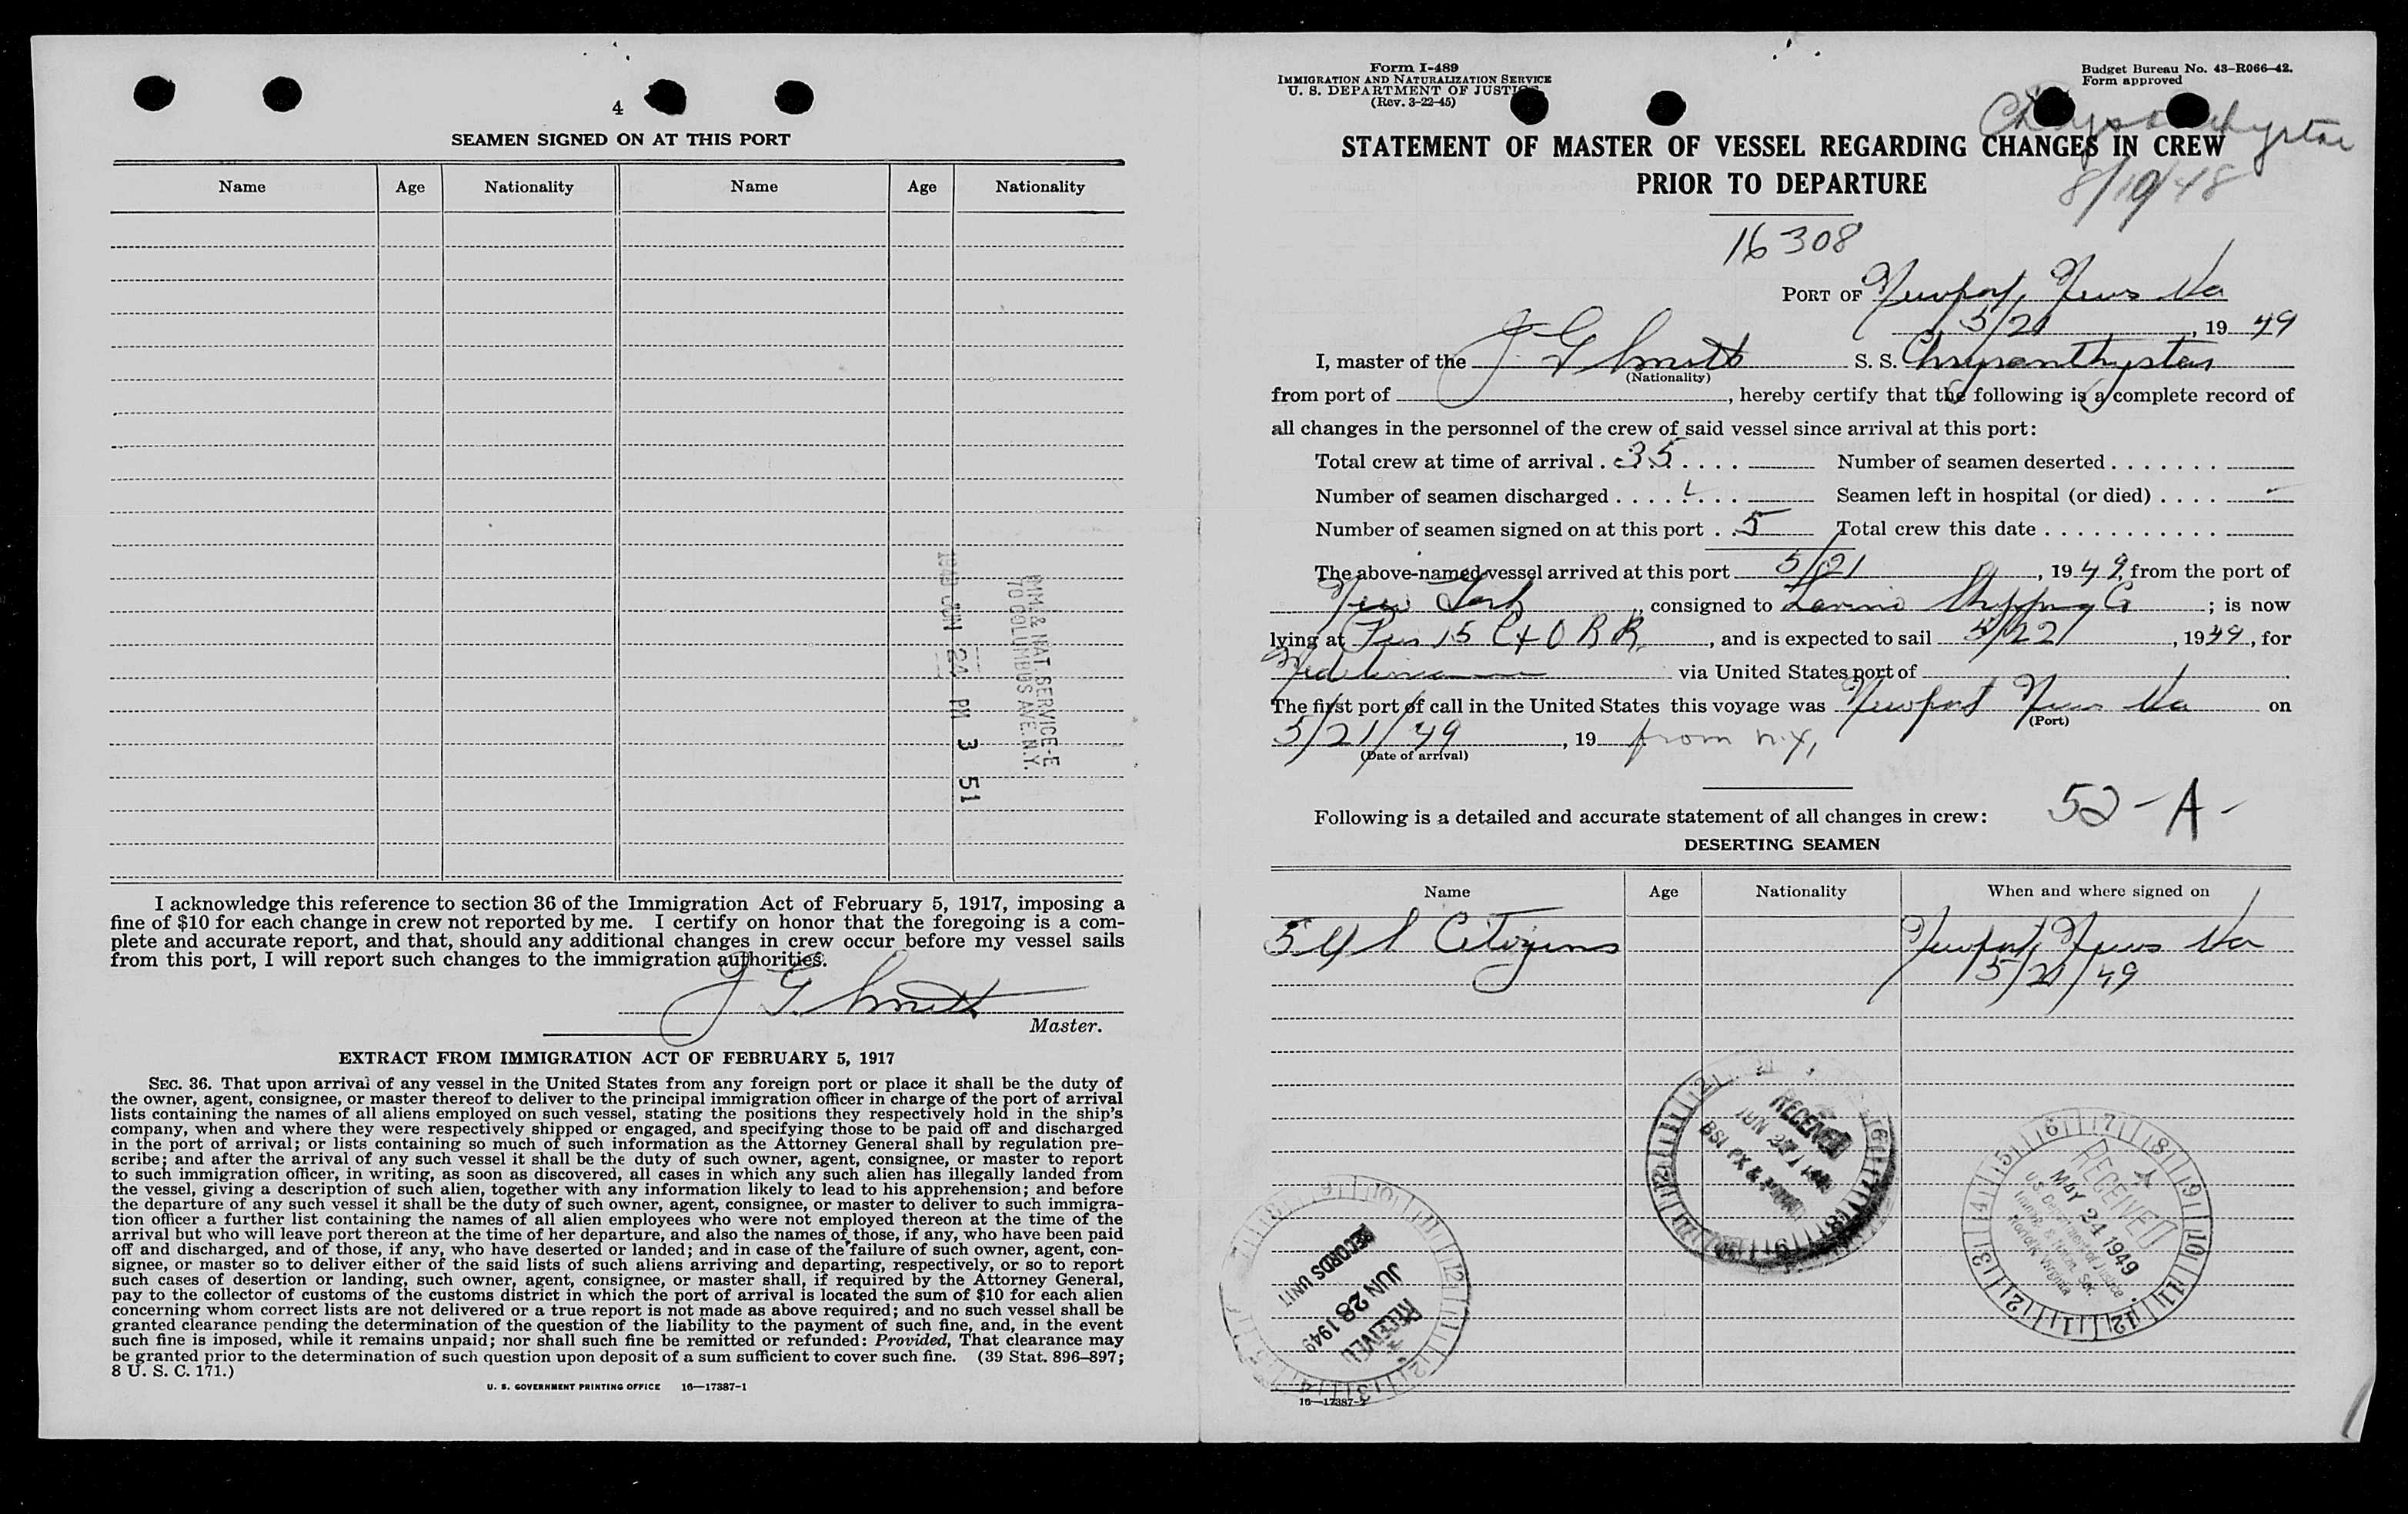 4
SEAMEN SIGNED ON AT THIS PORT
Name Age Nationality Name Age Nationality
IMM. & NAT. SERVICE-E
70 COLUMBUS AVE. N.Y.
1949 JUN 24 PM 3 51
I acknowledge this reference to section 36 of the Immigration Act of February 5, 1917, imposing a
fine of $10 for each change in crew not reported by me. I certify on honor that the foregoing is a com-
plete and accurate report, and that, should any additional changes in crew occur before my vessel sails
from this port, I will report such changes to the immigration authorities.
J G Smith
Master.
EXTRACT FROM IMMIGRATION ACT OF FEBRUARY 5, 1917
SEC. 36. That upon arrival of any vessel in the United States from any foreign port or place it shall be the duty of
the owner, agent, consignee, or master thereof to deliver to the principal immigration officer in charge of the port of arrival
lists containing the names of all aliens employed on such vessel, stating the positions they respectively hold in the ship's
company, when and where they were respectively shipped or engaged, and specifying those to be paid off and discharged
in the port of arrival; or lists containing so much of such information as the Attorney General shall by regulation pre-
scribe; and after the arrival of any such vessel it shall be the duty of such owner, agent, consignee, or master to report
to such immigration officer, in writing, as soon as discovered, all cases in which any such alien has illegally landed from
the vessel, giving a description of such alien, together with any information likely to lead to his apprehension; and before
the departure of any such vessel it shall be the duty of such owner, agent, consignee, or master to deliver to such immigra-
tion officer a further list containing the names of all alien employees who were not employed thereon at the time of the
arrival but who will leave port thereon at the time of her departure, and also the names of those, if any, who have been paid
off and discharged, and of those, if any, who have deserted or landed; and in case of the failure of such owner, agent, con-
signee, or master so to deliver either of the said lists of such aliens arriving and departing, respectively, or so to report
such cases of desertion or landing, such owner, agent, consignee, or master shall, if required by the Attorney General,
pay to the collector of customs of the customs district in which the port of arrival is located the sum of $10 for each alien
concerning whom correct lists are not delivered or a true report is not made as above required; and no such vessel shall be
granted clearance pending the determination of the question of the liability to the payment of such fine, and, in the event
such fine is imposed, while it remains unpaid; nor shall such fine be remitted or refunded: Provided, That clearance may
be granted prior to the determination of such question upon deposit of a sum sufficient to cover such fine. (39 Stat. 896–897;
8 U. S. C. 171.)
U. S. GOVERNMENT PRINTING OFFICE 16—17387-1
Form I-489
IMMIGRATION AND NATURALIZATION SERVICE
U. S. DEPARTMENT OF JUSTICE
(Rev. 3-22-45)
Budget Bureau No. 43-R066-42.
Form approved
STATEMENT OF MASTER OF VESSEL REGARDING CHANGES IN CREW
PRIOR TO DEPARTURE
8/19/48
16308
PORT OF Newport News Va
5/21, 19 49
I, master of the J G Smith S. S. Chrysanthystar
(Nationality)
from port of , hereby certify that the following is a complete record of
all changes in the personnel of the crew of said vessel since arrival at this port:
Total crew at time of arrival . 35 . . . . Number of seamen deserted . . . . . . .
Number of seamen discharged . . . . . . . Seamen left in hospital (or died) . . . . -
Number of seamen signed on at this port . . 5 Total crew this date . . . . . . . . . . .
The above-named vessel arrived at this port 5/21, 1949, from the port of
New York, consigned to Lavino Shipping Co; is now
lying at Pier 15 C & O R R, and is expected to sail 5/22, 1949, for
via United States port of
The first port of call in the United States this voyage was Newport News Va on
(Port)
5/21/49, 19 from N.Y,
(Date of arrival)
Following is a detailed and accurate statement of all changes in crew: 52-A-
DESERTING SEAMEN
Name Age Nationality When and where signed on
5 U S Citizens Newport News Va
5/21/49
RECEIVED
JUN 27
RECEIVED
MAY 24 1949
U.S. Department of Justice
Immig. & Natzn. Ser.
Norfolk Virginia
RECORDS UNIT
JUN 28 1949
RECEIVED
16—17387-1